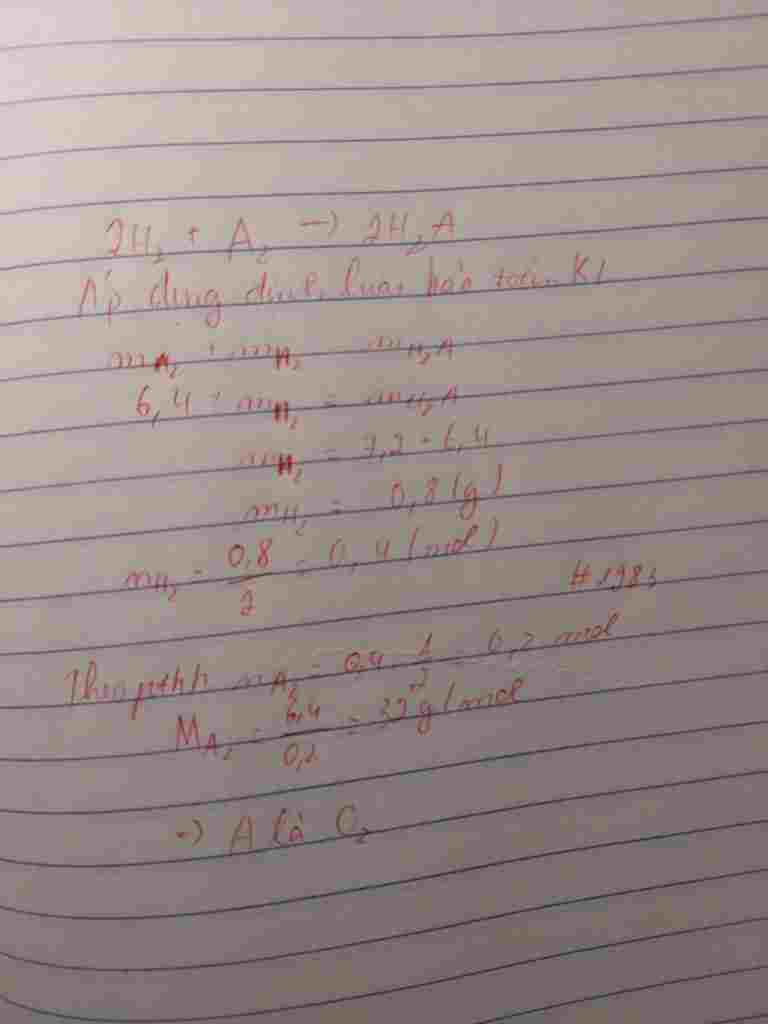 2H₂ + A₂ → 2H₂A
Áp dụng định luật bảo toàn KL
mA₂ + mH₂ = mH₂A
6,4 + mH₂ = mH₂A
mH₂ = 7,2 - 6,4
mH₂ = 0,8 (g)
nH₂ = 0,8/2 = 0,4 (mol)
Theo pthh nA₂ = 0,4 . 1/2 = 0,2 mol
MA₂ = 6,4/0,2 = 32 g/mol
→ A là O₂